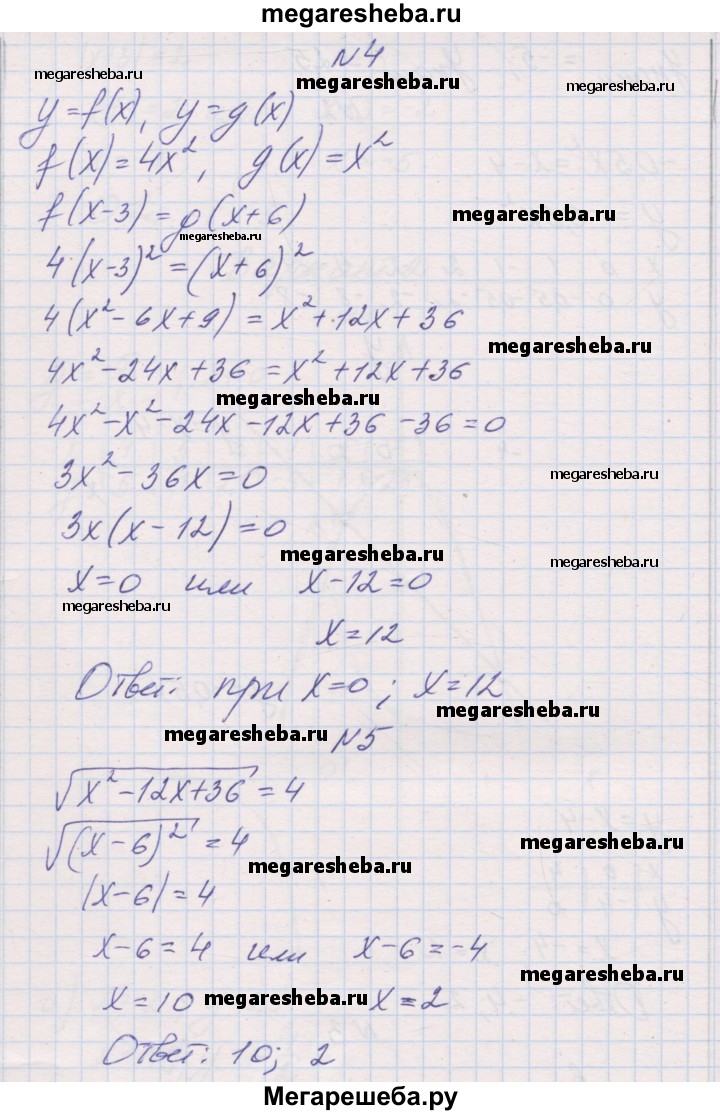 megaresheba.ru
N4
megaresheba.ru
megaresheba.ru
y=f(x), y=g(x)
f(x)=4x², g(x)=x²
f(x-3)=g(x+6)
megaresheba.ru
megaresheba.ru
4·(x-3)²=(x+6)²
4(x²-6x+9)=x²+12x+36
megaresheba.ru
4x²-24x+36=x²+12x+36
megaresheba.ru
4x²-x²-24x-12x+36-36=0
3x²-36x=0
megaresheba.ru
3x(x-12)=0
megaresheba.ru
megaresheba.ru
x=0 или x-12=0
megaresheba.ru
x=12
Ответ: при x=0; x=12
megaresheba.ru
megaresheba.ru
N5
√(x²-12x+36)=4
√((x-6)²)=4
megaresheba.ru
megaresheba.ru
|x-6|=4
x-6=4 или x-6=-4
megaresheba.ru
x=10 megaresheba.ru x=2
Ответ: 10; 2
Мегарешеба.ру